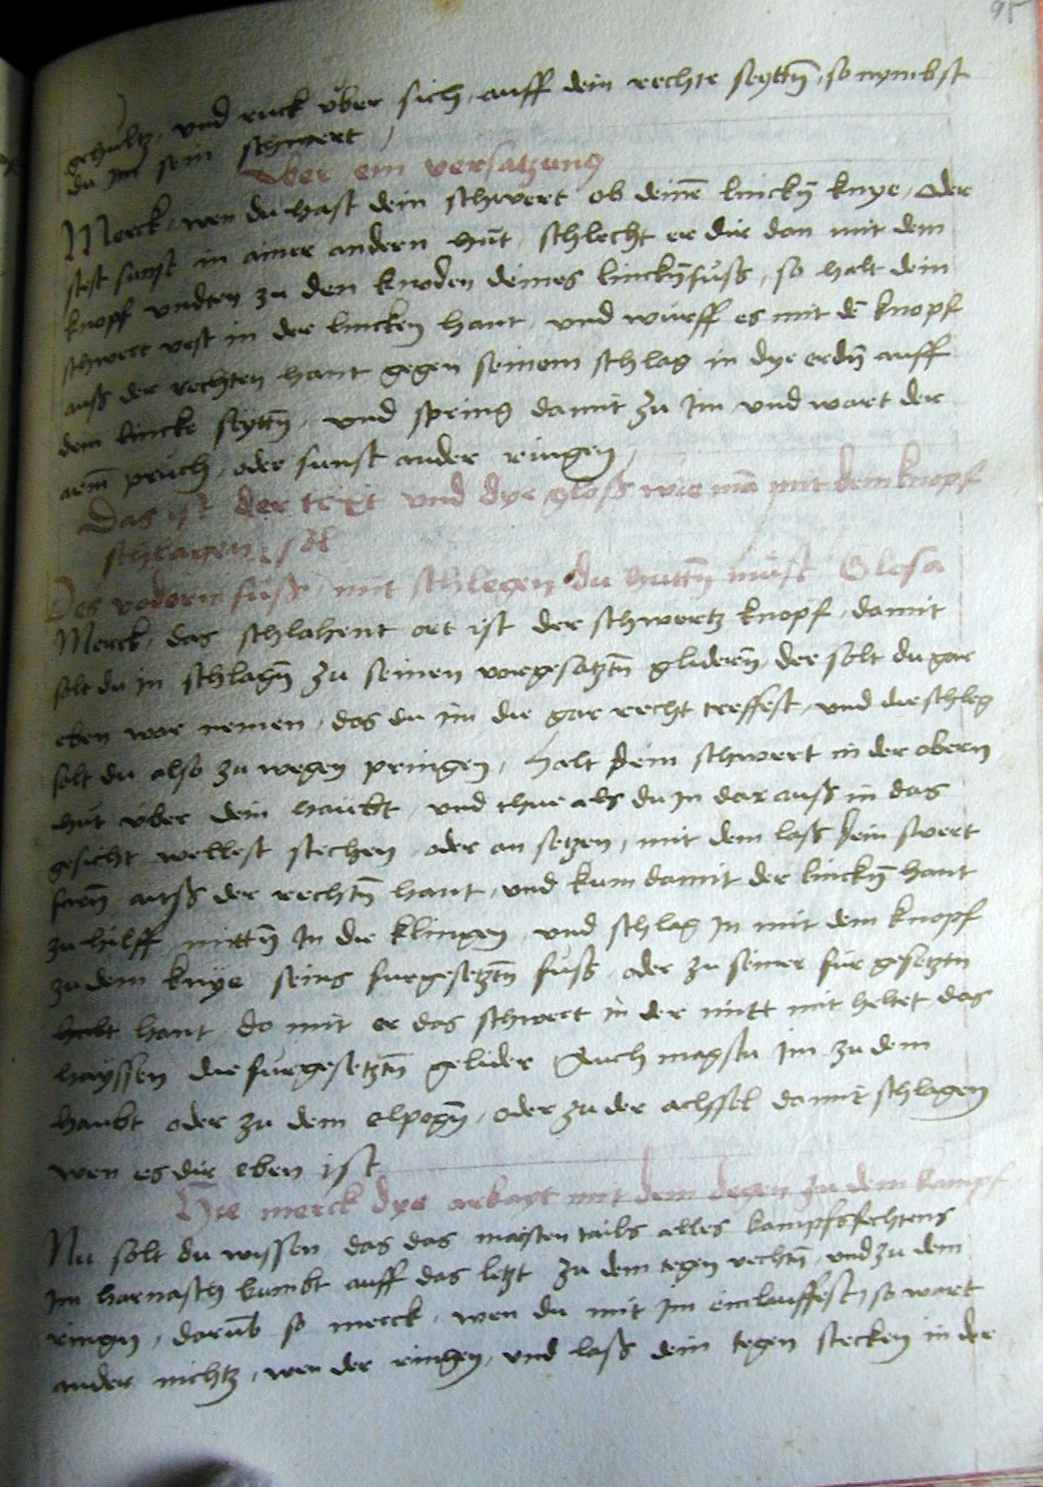 95
gehultz, und ruck uber sich, auff dein rechte seyttñ, so nymbst
du im sein schwert
Aber ein versatzung
Merck, wen du hast dein schwert ob deinē linckñ knye, oder
stest sunst in ainer andern hůt, schlecht er dir dan mit dem
knopf undten zu den knoden deines linckñ fuss, so halt dein
schwert vest in der lincken hant, und wurff es mit dē knopf
auss der rechten hant gegen seinem schlag in dye erdñ auff
dein lincke seyttñ, und spring damit zu im und wart der
arm pruch, oder sunst ander ringen
Das ist der text und dye gloss wie mā mit dem knopf
schlagen sol
Des vodern fuss, mit schlegen du huttñ must Glosa
Merck, das schlahent ort ist der schwertz knopf, damit
solt du in schlagñ zu seinen vorgesatztñ gliderñ, der solt du gar
eben war nemen, das du im die gar recht treffest, und die schleg
solt du also zu wegen pringen, halt dein schwert in der obern
hut uber dein haubt, und thue als du in dar auss in das
gesicht wellest stechen, oder an setzen, mit dem lass dein swert
farñ auss der rechtñ hant, und kum damit der linckñ hant
zu hilff, mittñ In die klingen, und schlag in mit dem knopf
zu dem knye seins furgesetztñ fuss, oder zu seiner fur gesetztñ
hant do mit er das schwert in der mitt mit heltet das
hayssen die furgesetztñ gelider Auch magstu im zu dem
haubt oder zu dem elpogñ, oder zu der achssel damit schlagen
wen es dir eben ist
Hie merck dye arbayt mit dem degen zu dem kampf
Nu solt du wyssen das das maysten tails alles kampfsfechtens
Im harnasch kumbt auff das letzt zu dem tegen vechtñ, und zu dem
ringñ, darub so merck, wen du mit im einlauffest, so wart
ander nichtz, wen der ringen, und lass dein tegen stecken in der